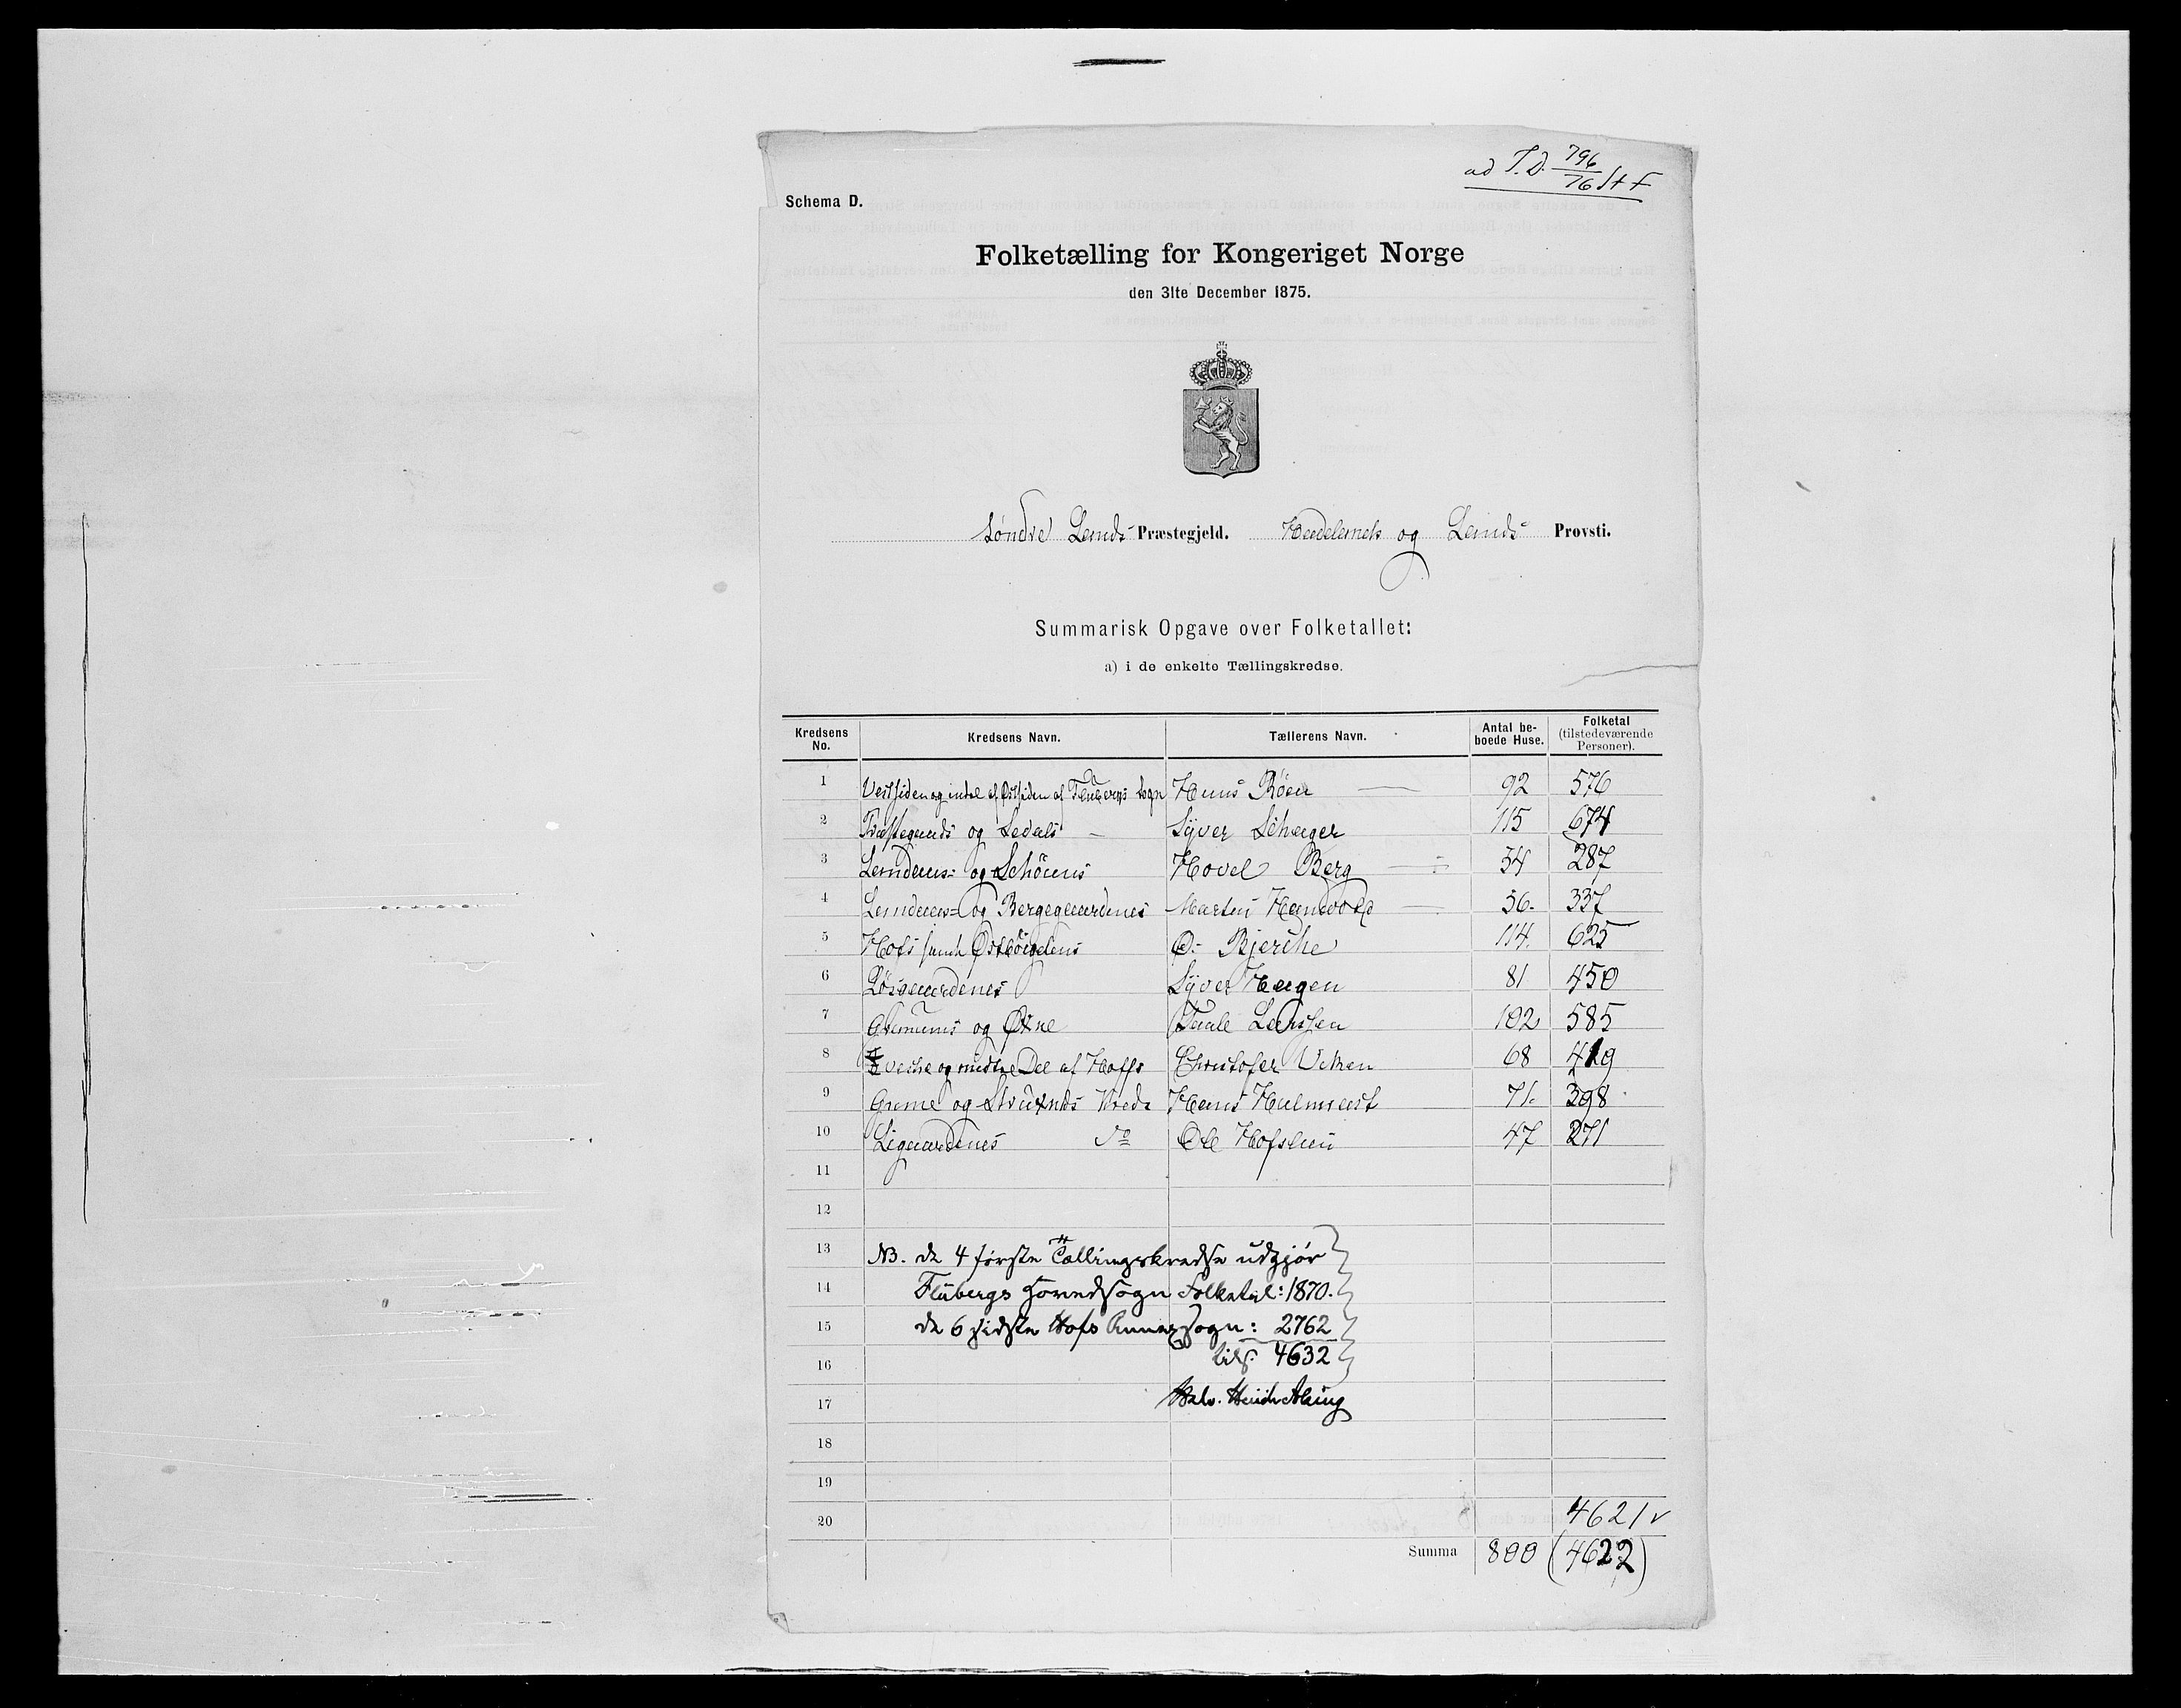 ad T.D. 796/76 St F
Schema D.
Folketælling for Kongeriget Norge
den 31te December 1875.
Søndre Lands Præstegjeld. Hadelands og Lands Provsti.
Summarisk Opgave over Folketallet:
a) i de enkelte Tællingskredse.
Kredsens No. Kredsens Navn. Tællerens Navn. Antal beboede Huse. Folketal (tilstedeværende Personer).
1 Vestsiden og endel af Østsiden af Flubergs Sogn Hans Röen 92 576
2 og Sedals Syver 115 674
3 Landaas- og Hovel Berg 54 287
4 Landaas- og Bergegaardenes Martin 56. 337
5 Hofs samt O. Bjerche 114. 625
6 Syver Haugen 81 450
7 og Østre Paale Larssen 102 585
8 og midtre Del af Hoffs Christofer 68 419
9 Greme og Kreds Hans 71. 398
10 Ligaardenes do Ole Hofslien 47 271
11
12
13 NB. de 4 første Tællingskredse udgjør
14 Flubergs Hovedsogn Folketal: 1870.
15 de 6 sidste Hofs Annexsogn: 2762
16 tils. 4632
17
18
19
20 4621 v
Summa 800 (4622)